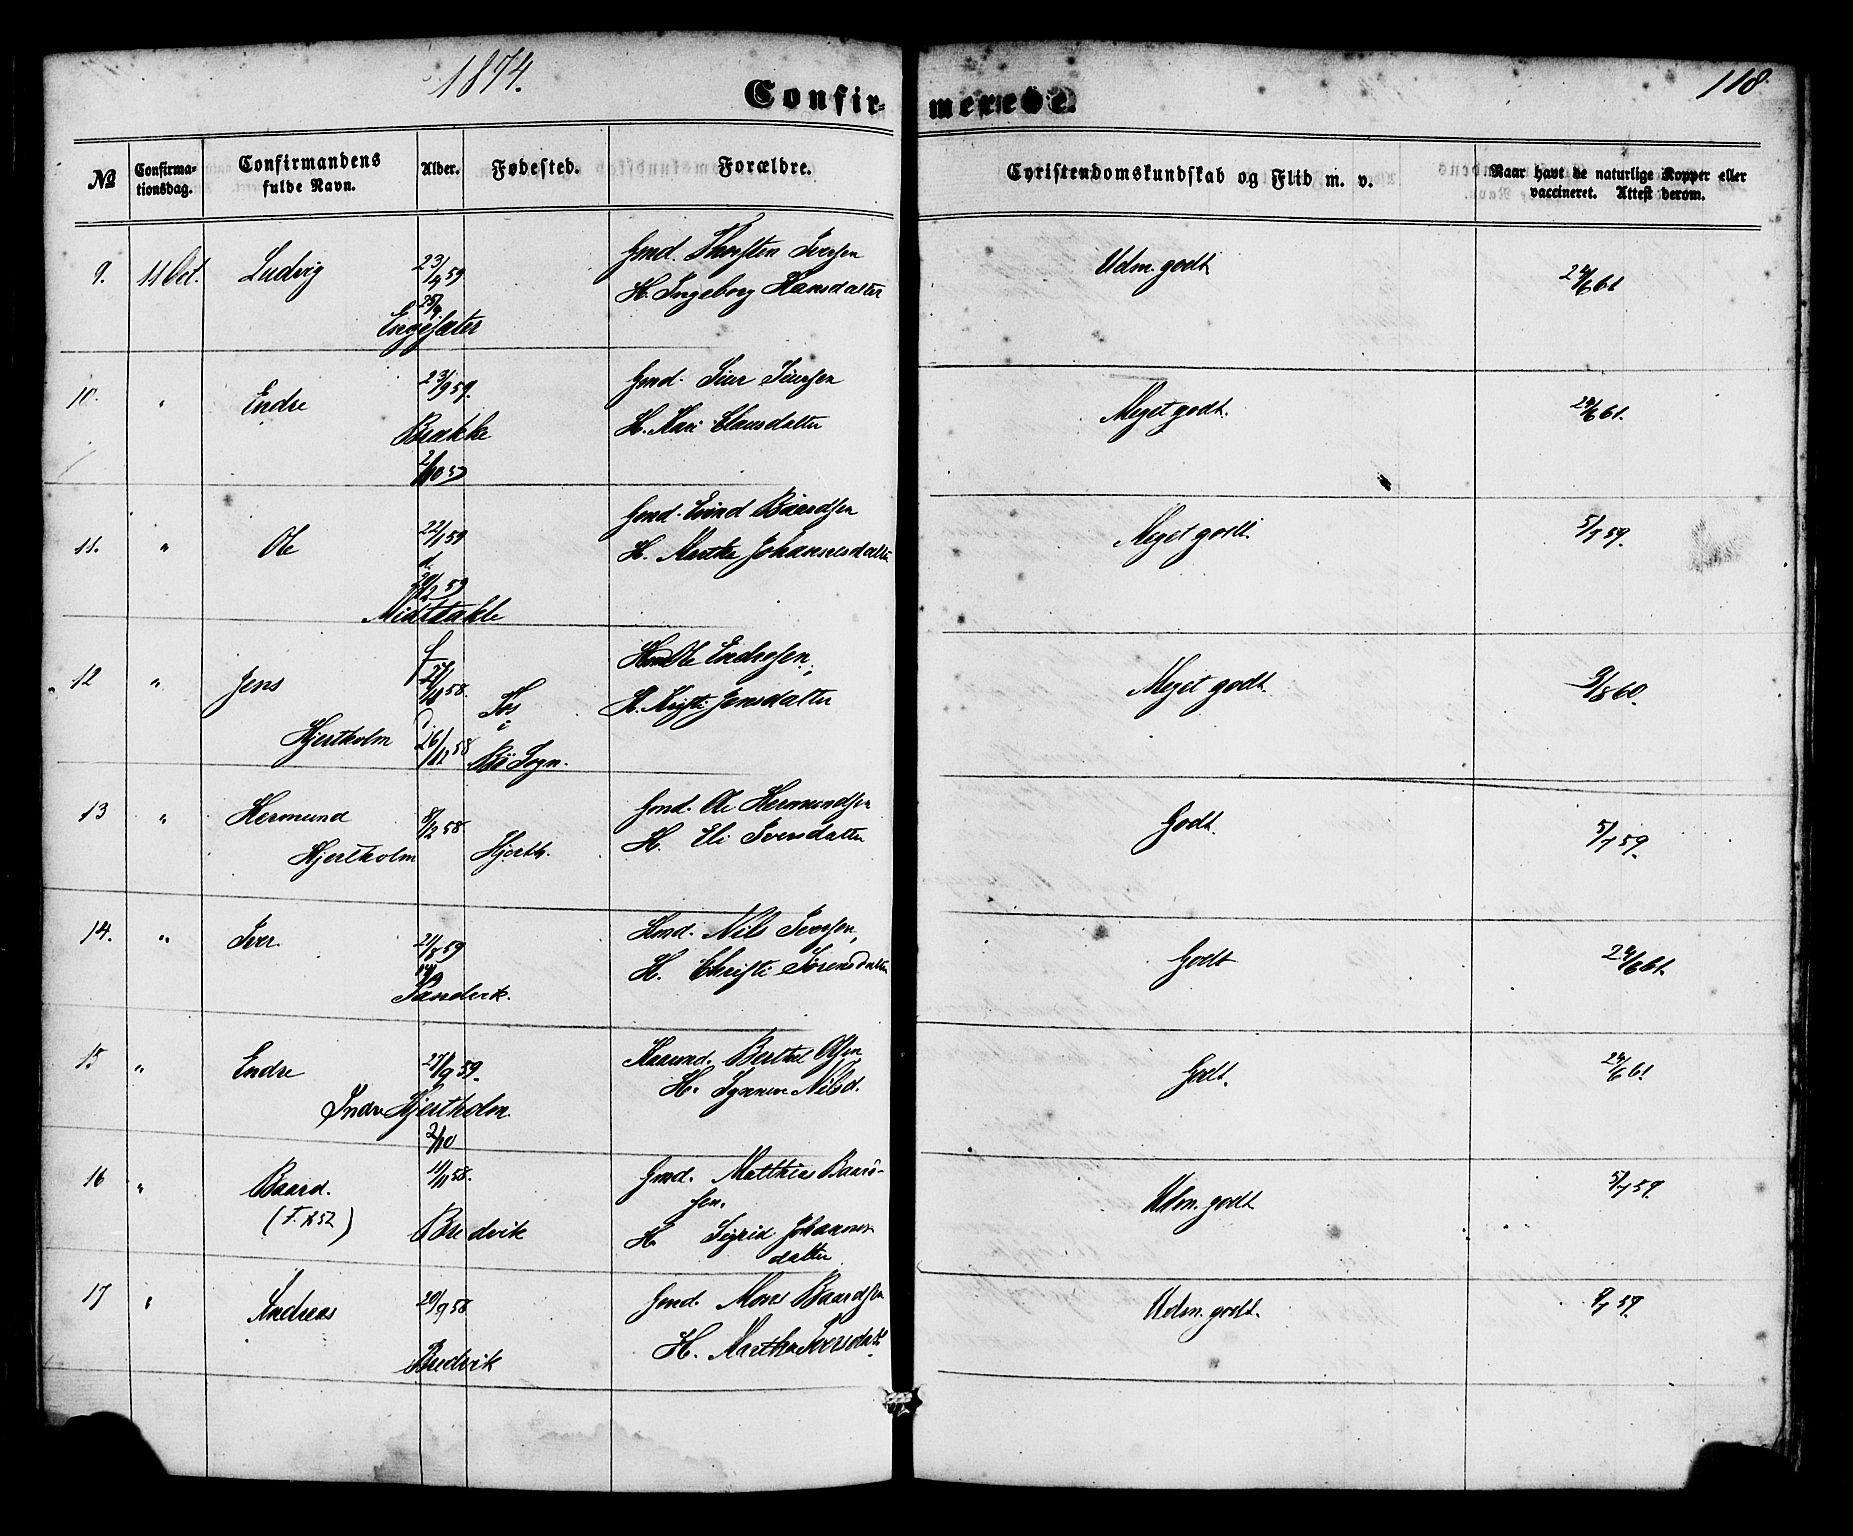 1874.
118.
Confir- merede.
№ Confirma-tionsdag. Confirmandens fulde Navn. Alder. Fødested. Forældre. Christendomskundskab og Flid m. v. Naar havt de naturlige Kopper eller vaccineret. Attest derom.
9. 11 Oct. Ludvig 23/4 59 Gmd. Thorsten Iversen Udm. godt 24/6 61
25/9. H. Ingeborg Hansdatter
Engesæter
10. " Endre 23/9 59. Gmd. Siur Siursen Meget godt. 24/6 61.
Brække H. Kari Clausdatter
2/10 59
11. " Ole 22/1 59 Gmd. Eivind Baardsen Meget godt. 5/7 59.
d. H. Marthe Johannesdatter
20/2 59
Midttække
12 " Jens f 27/11 58. Ole Endresen, Meget godt. 9/8 60.
H. Kristi Jensdatter
Hjertholm d. 26/12 58 i
Bø Sogn.
13 " Hermund 8/2 58 Gmd. Ole Hermundsen Godt. 5/7 59.
Hjertholm Hjerth. H. Eli Iversdatter
14. " Iver 21/8 59 Gmd. Nils Iversen, Godt 24/6 61.
14/9 H. Christi Sørensdatter
Sandvik.
15 " Endre 27/9 59. Berthel Olsen Godt. 24/6 61
Indre Hjertholm. H. Synneve Nilsd.
2/10
16 " Baard. 11/11 58. Gmd. Matthias Baard- Udm. godt 5/7 59.
sen.
(F. № 52) Bredvik H. Sigrid Johannes-
datter
17 " Andreas 20/9 58 Gmd. Mons Baardsen Udm. godt. 9/7 59.
Bredvik H. Martha Iversdatt.